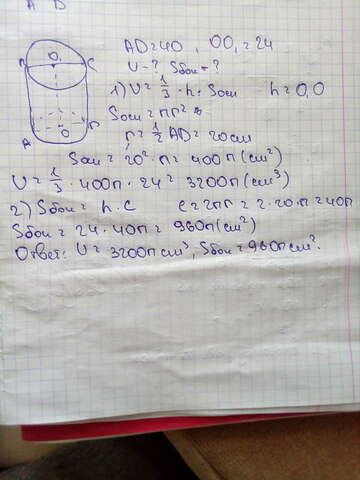 A D
O₁
B C
O
A D
AD=40, OO₁=24
V-? Sбок-?
1) V=1/3·h·Sосн h=O₁O
Sосн=πr²
r=1/2AD=20см
Sосн=20²·π=400π(см²)
V=1/3·400π·24=3200π(см³)
2) Sбок=h·c c=2πr=2·20·π=40π
Sбок=24·40π=960π(см²)
Ответ: V=3200π см³, Sбок=960π см².